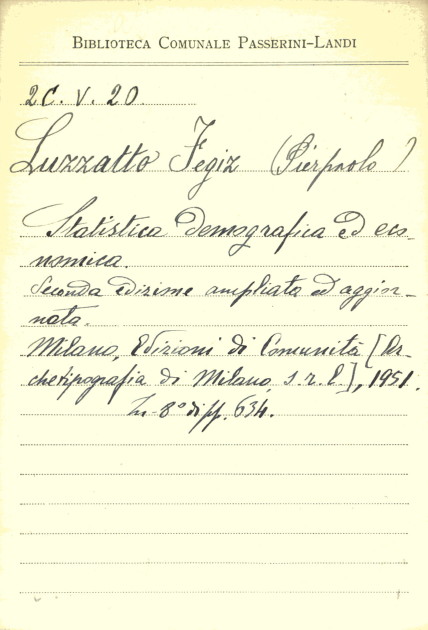 BIBLIOTECA COMUNALE PASSERINI-LANDI
2C. V. 20.
Luzzatto Fegiz (Pierpaolo)
Statistica demografica ed eco-
nomica.
Seconda edizione ampliata ed aggior-
nata.
Milano, Edizioni di Comunità [Ar-
chetipografia di Milano, s. r. l.], 1951.
In-8° di pp. 634.